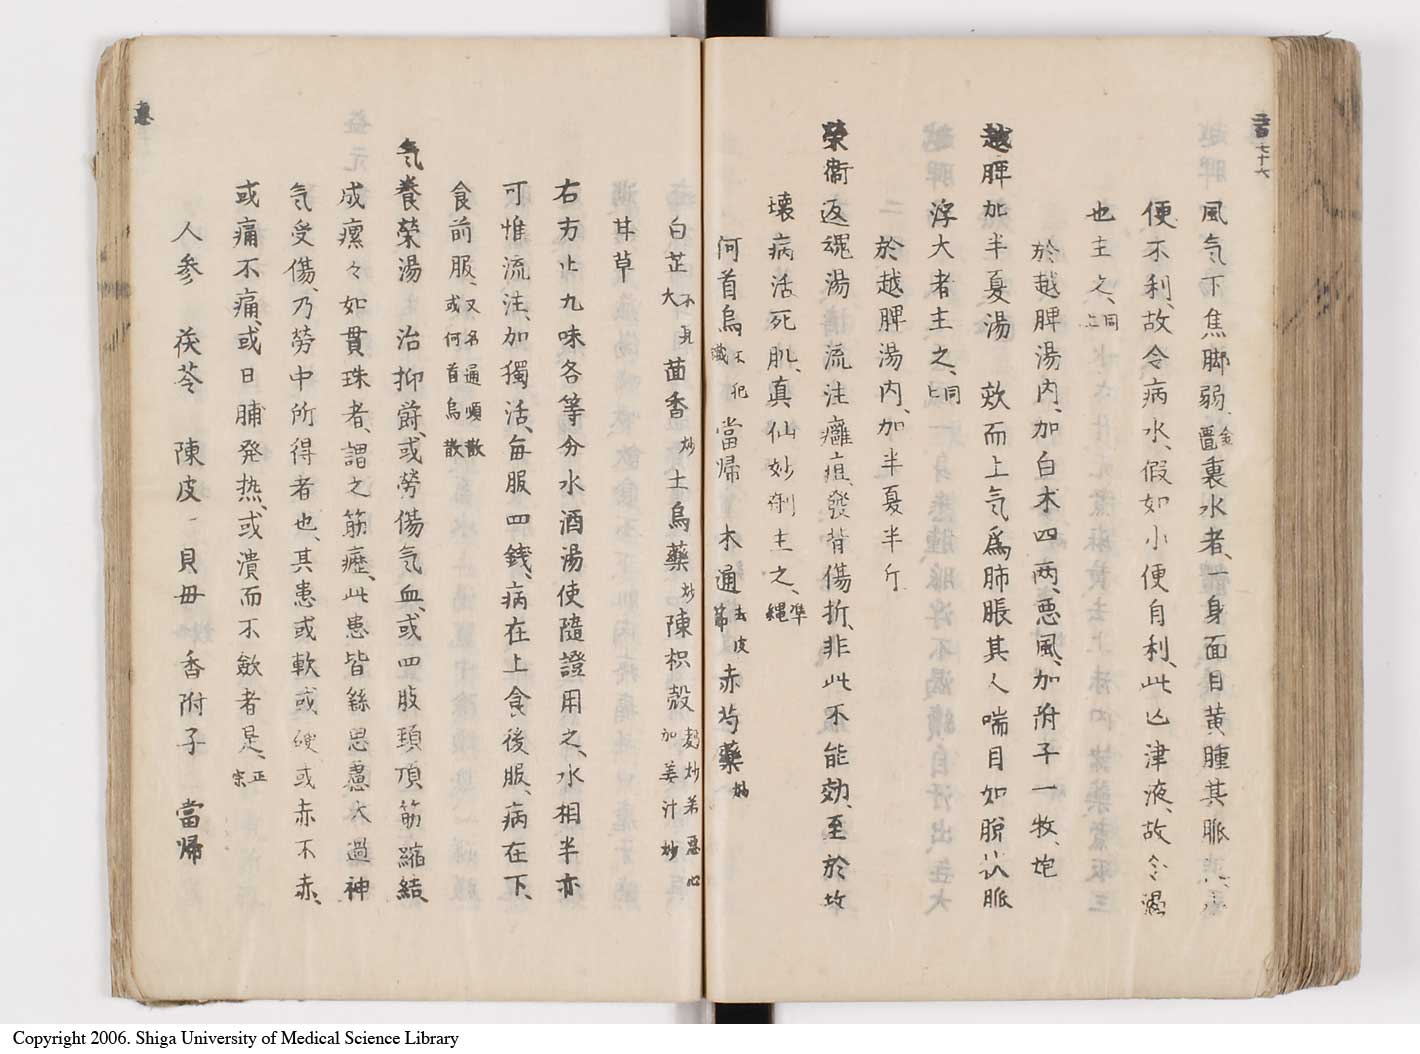 二百七十六
風気下焦脚弱、金匱裏水者、一身面目黄腫其脈沉小
便不利、故令病水、假如小便自利、此亡津液、故令渴
也主之、同上
於越脾湯内、加白朮四两、悪風、加附子一枚、炮
越脾加半夏湯 欬而上気爲肺脹其人喘目如脫状脈
浮大者主之、同上
於越脾湯内、加半夏半斤
榮衞返魂湯流注癰疽、發背傷折、非此不能効、至於救
壊病活死肌、真仙妙剤主之、準繩
何首烏不犯鐵 當帰 木通去皮節 赤芍藥炒
白芷不見火 茴香炒 土烏藥炒 陳枳殼麸炒若惡心加姜汁炒
甘草
右方止九味各等分水酒湯使隨證用之、水相半亦
可惟流注、加獨活、每服四錢、病在上食後服、病在下、
食前服、又名通順散或何首烏散
気養榮湯 治抑欝、或勞傷気血、或四肢頚項筋縮結
成瘰々如貫珠者、謂之筋癧、此患皆繇思慮太過神
気受傷、乃勞中所得者也、其患或軟或硬或赤不赤、
或痛不痛、或日晡発熱、或潰而不歛者是、正宗
人参 茯苓 陳皮 貝母 香附子 當帰